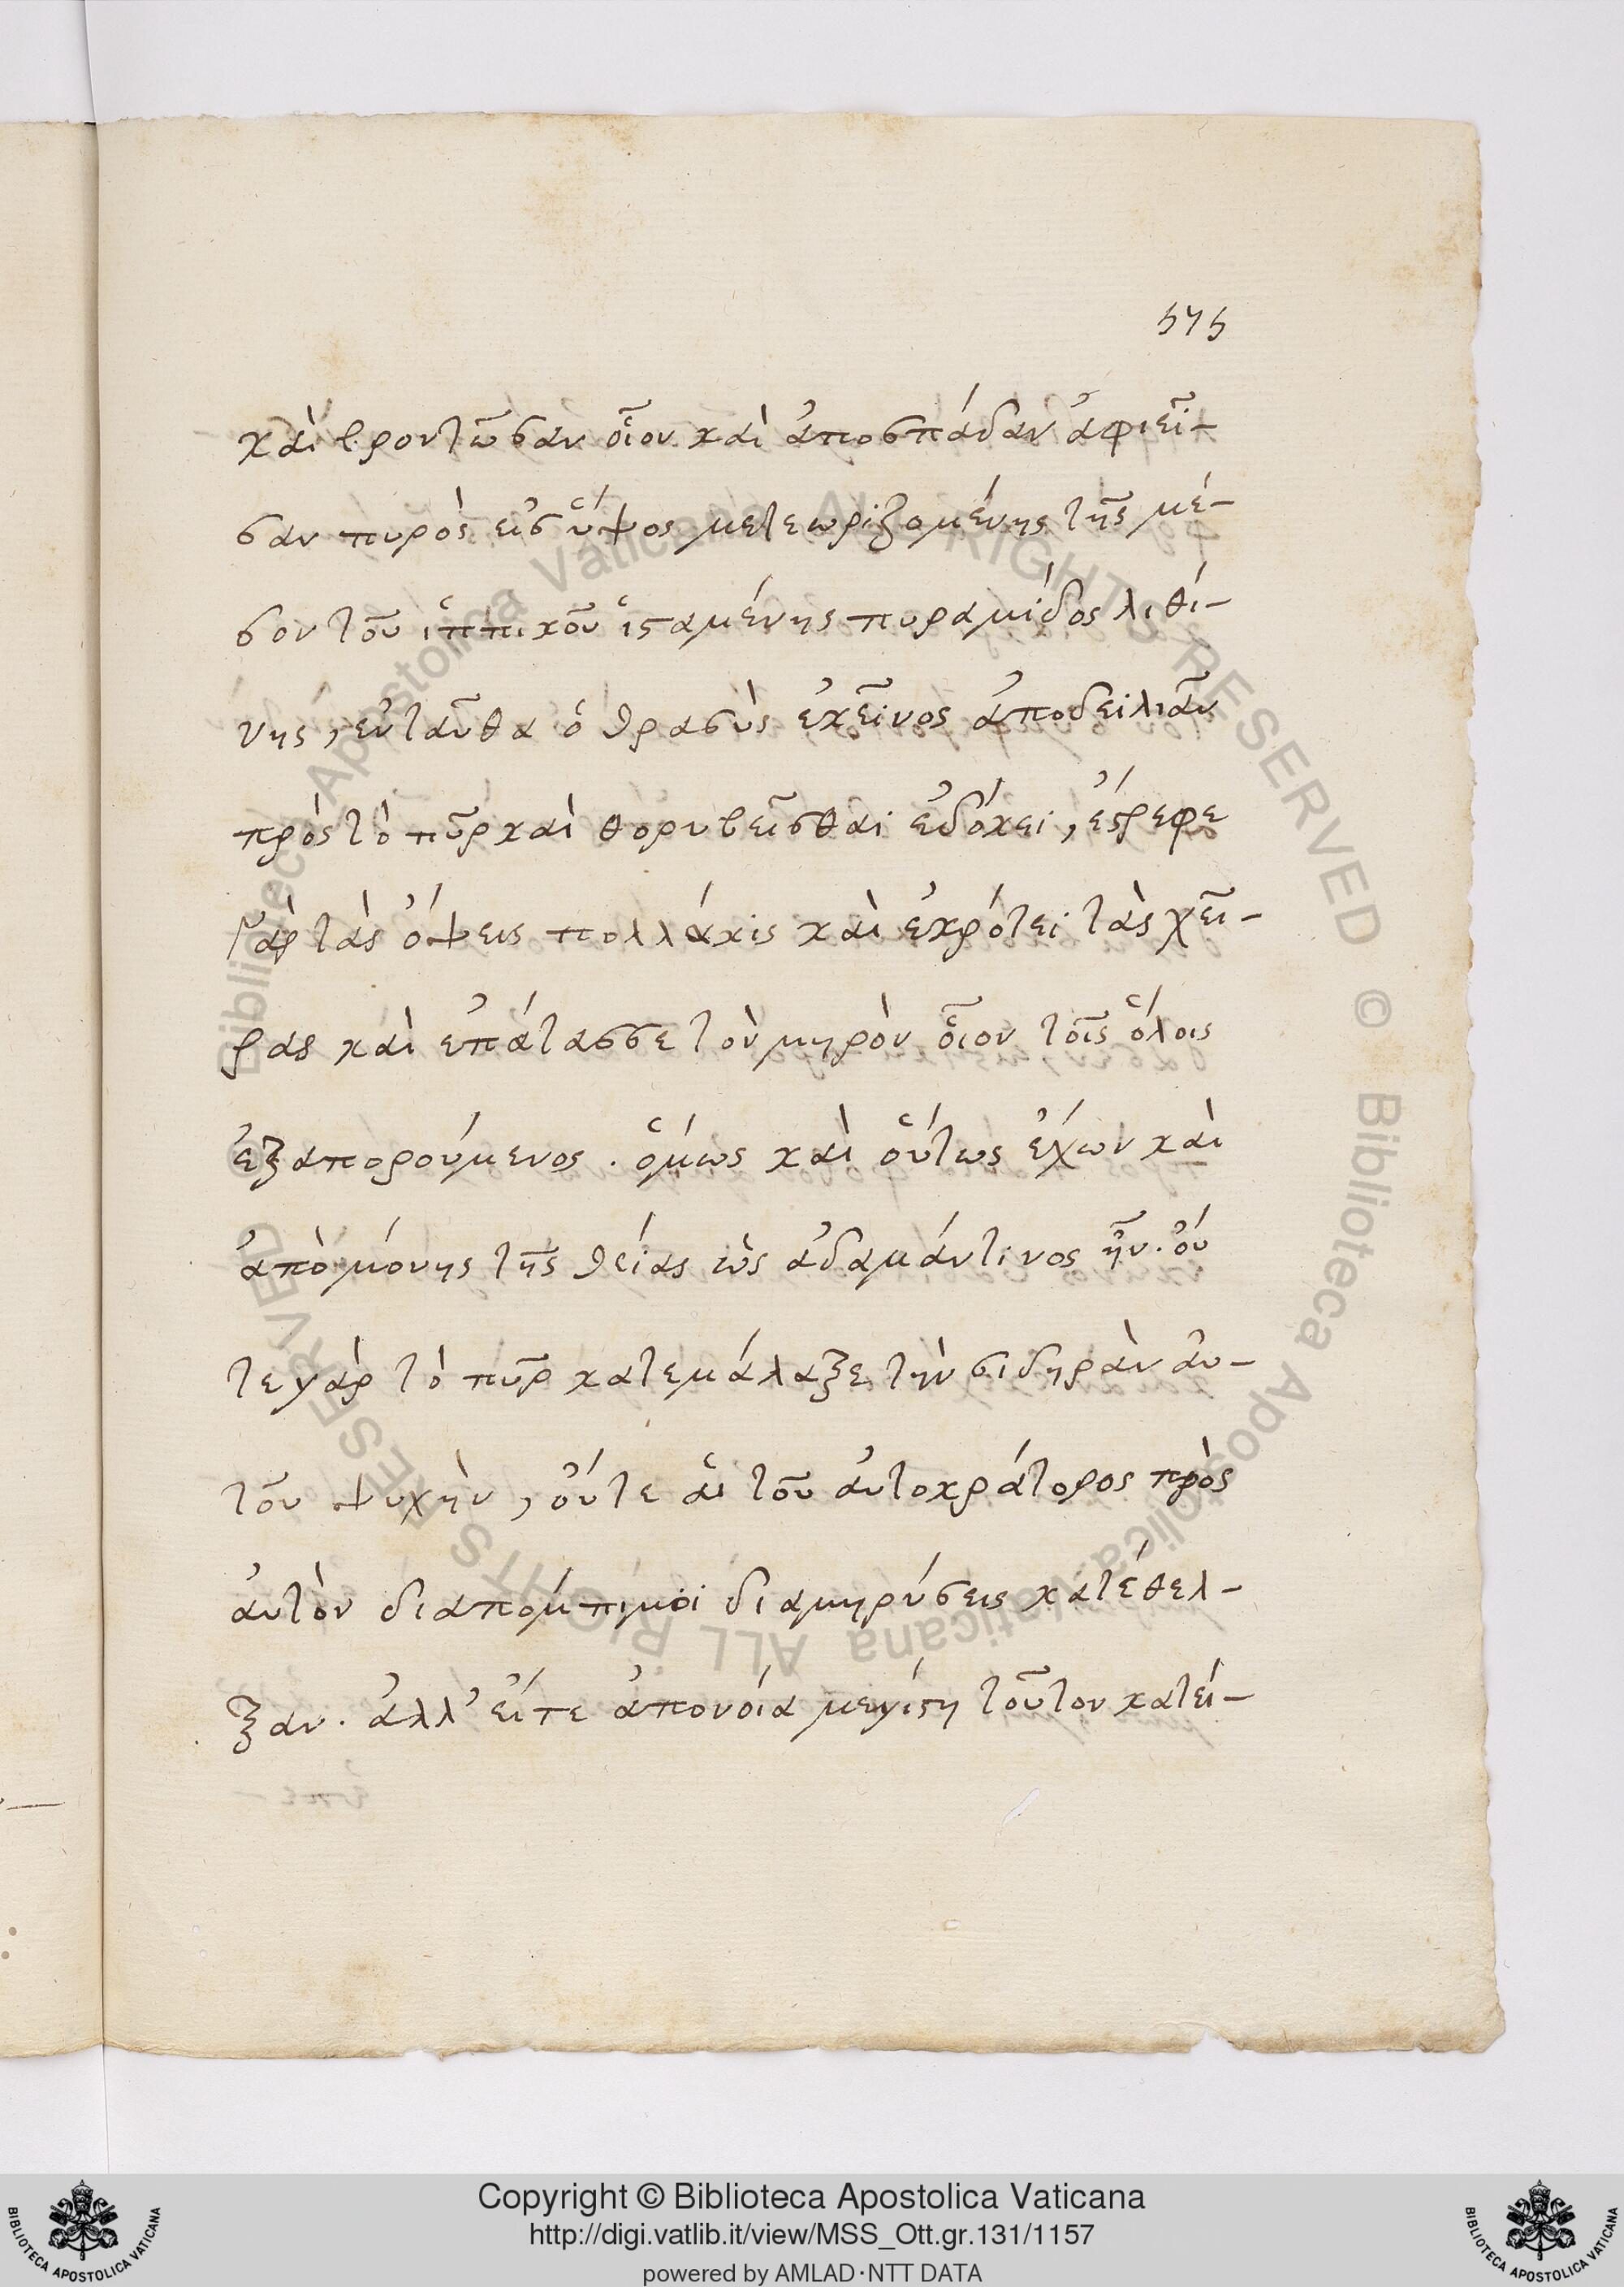 575
καὶ βροντῶσαν οἷον καὶ ἀποσπάδαν ἀφιεῖ-
σαν πυρὸς εἰς ὕψος μετεωριζομένης τῆς μέ-
σον τοῦ ἱππικοῦ ἱσταμένης πυραμίδος λιθί-
νης, ἐνταῦθα ὁ θρασὺς ἐκεῖνος ἀποδειλιᾶν
πρὸς τὸ πῦρ καὶ θορυβεῖσθαι ἐδόκει, ἔστρεφε
γὰρ τὰς ὄψεις πολλάκις καὶ ἐκρότει τὰς χεῖ-
ρας καὶ ἐπάτασσε τὸν μηρὸν οἷον τοῖς ὅλοις
ἐξαπορούμενος. ὅμως καὶ οὕτως ἔχων καὶ
ἀπὸ μόνης τῆς θείας ὡς ἀδαμάντινος ἦν. οὔ
τε γὰρ τὸ πῦρ κατεμάλαξε τὴν σιδηρὰν αὐ-
τοῦ ψυχὴν, οὔτε αἱ τοῦ αὐτοκράτορος πρὸς
αὐτὸν διαπομπιμοι διαμηρύσεις κατέθελ-
ξαν. ἀλλ' εἴτε ἀπονοία μεγίστη τοῦτον κατεί-
Copyright © Biblioteca Apostolica Vaticana
http://digi.vatlib.it/view/MSS_Ott.gr.131/1157
powered by AMLAD·NTT DATA
BIBLIOTECA APOSTOLICA VATICANA
BIBLIOTECA APOSTOLICA VATICANA
Biblioteca Apostolica Vaticana ALL RIGHTS RESERVED © Biblioteca Apostolica Vaticana ALL RIGHTS RESERVED ©